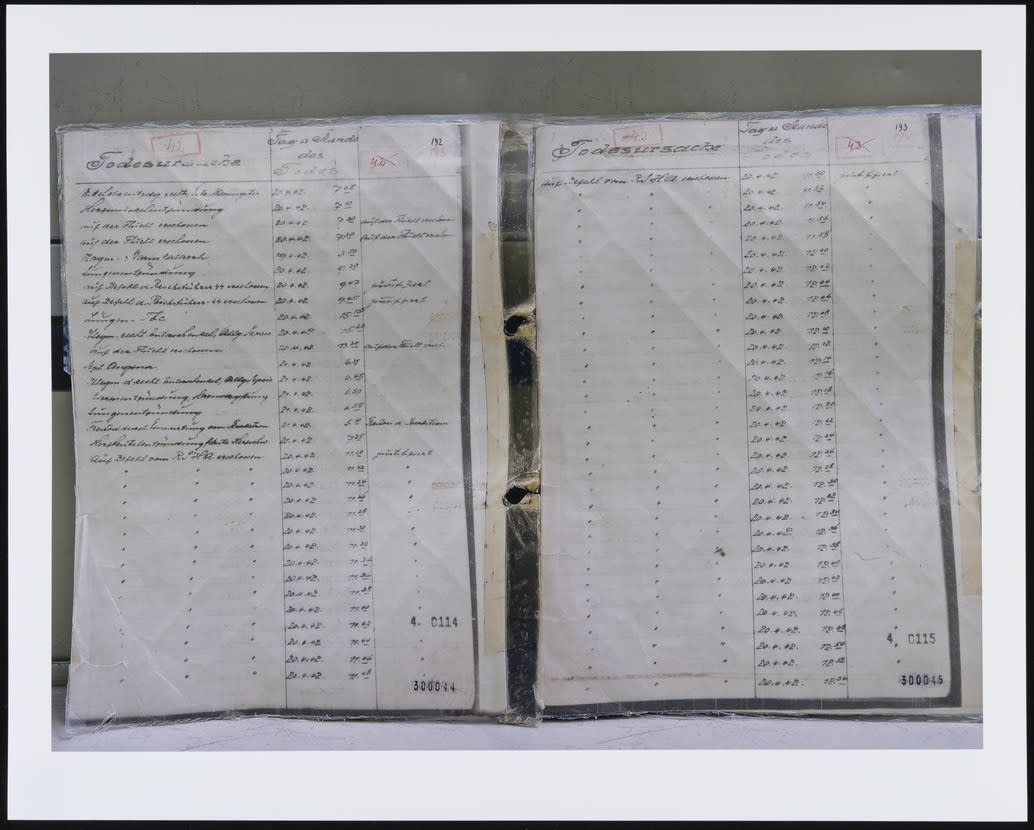 42
Todesursache
Tag u. Stunde
des
Todes
42
192
20.4.42. 7 05
Herzmuskelentzündung 20.4.42. 7 10
auf der Flucht erschossen 20.4.42 7 30 auf der Flucht erschossen
auf der Flucht erschossen 20.4.42 7 30 auf der Flucht erschossen
Magen- u. Darmkatarrh 19.4.42
Lungenentzündung 20.4.42.
auf Befehl d. Reichsführer SS erschossen 20.4.42 justifiziert
auf Befehl d. Reichsführer SS erschossen 20.4.42 justifiziert
Lungen-Tbc 20.4.42
Phlegm. recht. Unterschenkel, Allg. Sepsis 20.4.42
auf der Flucht erschossen 20.4.42 13 30 auf der Flucht ersch
Sept. Angina 21.4.42
Phlegm. d. recht. Unterschenkel, Allg. Sepsis 21.4.42 6 45
21.4.42 6 50
Lungenentzündung 21.4.42 6 55
Freitod durch Einwirkung von Starkstrom 21.4.42 Freitod d. Starkstrom
21.4.42 7 25
Auf Befehl vom R.S.H.A erschossen 20.4.42 11 20 justifiziert
" " " 20.4.42 11 22 "
" " " 20.4.42 11 24 "
" " " 20.4.42 11 26 "
" " " 20.4.42 11 28 "
" " " 20.4.42 11 30 "
" " " 20.4.42 11 32 "
" " " 20.4.42 11 34 "
" " " 20.4.42 11 36 "
" " " 20.4.42 11 38 "
" " " 20.4.42 11 40 "
" " " 20.4.42 11 42 "
4. 0114
" " " 20.4.42 11 44 "
" " " 20.4.42 11 46 "
" " " 20.4.42 11 48 "
300044
42
Todesursache
Tag u. Stunde
des
Todes
42
193
auf Befehl vom R.S.H.A erschossen 20.4.42 11 50 justifiziert
" " " 20.4.42 11 52 "
" " " 20.4.42 11 54 "
" " " 20.4.42 11 56 "
" " " 20.4.42 11 58 "
" " " 20.4.42 12 00 "
" " " 20.4.42 12 02 "
" " " 20.4.42 12 04 "
" " " 20.4.42 12 06 "
" " " 20.4.42 12 08 "
" " " 20.4.42 12 10 "
" " " 20.4.42 12 12 "
" " " 20.4.42 12 14 "
" " " 20.4.42 12 16 "
" " " 20.4.42 12 18 "
" " " 20.4.42 12 20 "
" " " 20.4.42 12 22 "
" " " 20.4.42 12 24 "
" " " 20.4.42 12 26 "
" " " 20.4.42 12 28 "
" " " 20.4.42 12 30 "
" " " 20.4.42 12 32 "
" " " 20.4.42 12 34 "
" " " 20.4.42 12 36 "
" " " 20.4.42 12 38 "
" " " 20.4.42 12 40 "
" " " 20.4.42 12 42 "
" " " 20.4.42 12 44 "
" " " 20.4.42 12 46 "
" " " 20.4.42 12 48 "
4. 0115
" " " 20.4.42 12 50 "
" " " 20.4.42 12 52 "
" " " 20.4.42 12 54 "
300045